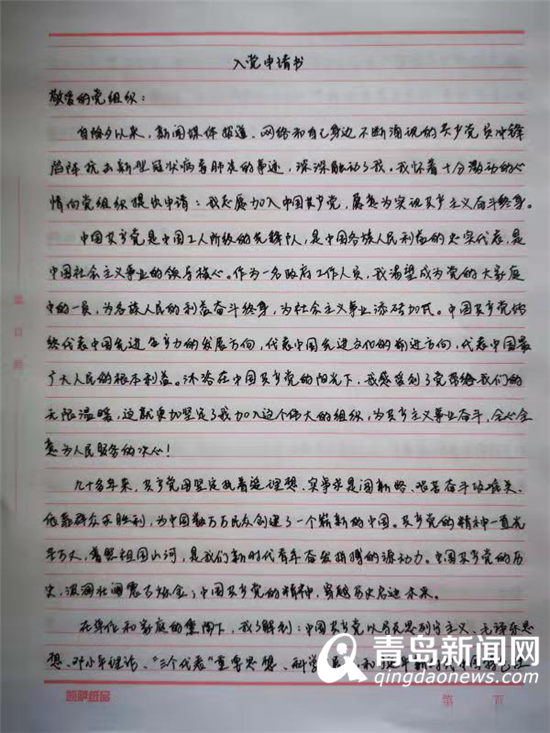 入党申请书
敬爱的党组织:
自除夕以来,新闻媒体报道、网络和自己身边不断涌现的共产党员冲锋
陷阵抗击新型冠状病毒肺炎的事迹,深深触动了我。我怀着十分激动的心
情向党组织提出申请:我志愿加入中国共产党,愿意为实现共产主义奋斗终身。
中国共产党是中国工人阶级的先锋队,是中国各族人民利益的忠实代表,是
中国社会主义事业的领导核心。作为一名政府工作人员,我渴望成为党的大家庭
中的一员,为各族人民的利益奋斗终身,为社会主义事业添砖加瓦。中国共产党始
终代表中国先进生产力的发展方向,代表中国先进文化的前进方向,代表中国最
广大人民的根本利益。沐浴在中国共产党的阳光下,我感受到了党带给我们的
无限温暖,这就更加坚定了我加入这个伟大的组织,为共产主义事业奋斗,全心全
意为人民服务的决心!
九十多年来,共产党因坚定执着追理想、实事求是闯新路、艰苦奋斗攻难关、
依靠群众求胜利,为中国数万万民众创建了一个崭新的中国。共产党的精神一直光
芒万丈,普照祖国山河,是我们新时代青年奋发拼搏的源动力。中国共产党的历
史,波澜壮阔震古烁今;中国共产党的精神,穿越历史启迪未来。
在单位和家庭的熏陶下,我了解到:中国共产党以马克思列宁主义、毛泽东思
想、邓小平理论、"三个代表"重要思想、科学
凯萨纸品
第 页
青岛新闻网
qingdaonews.com